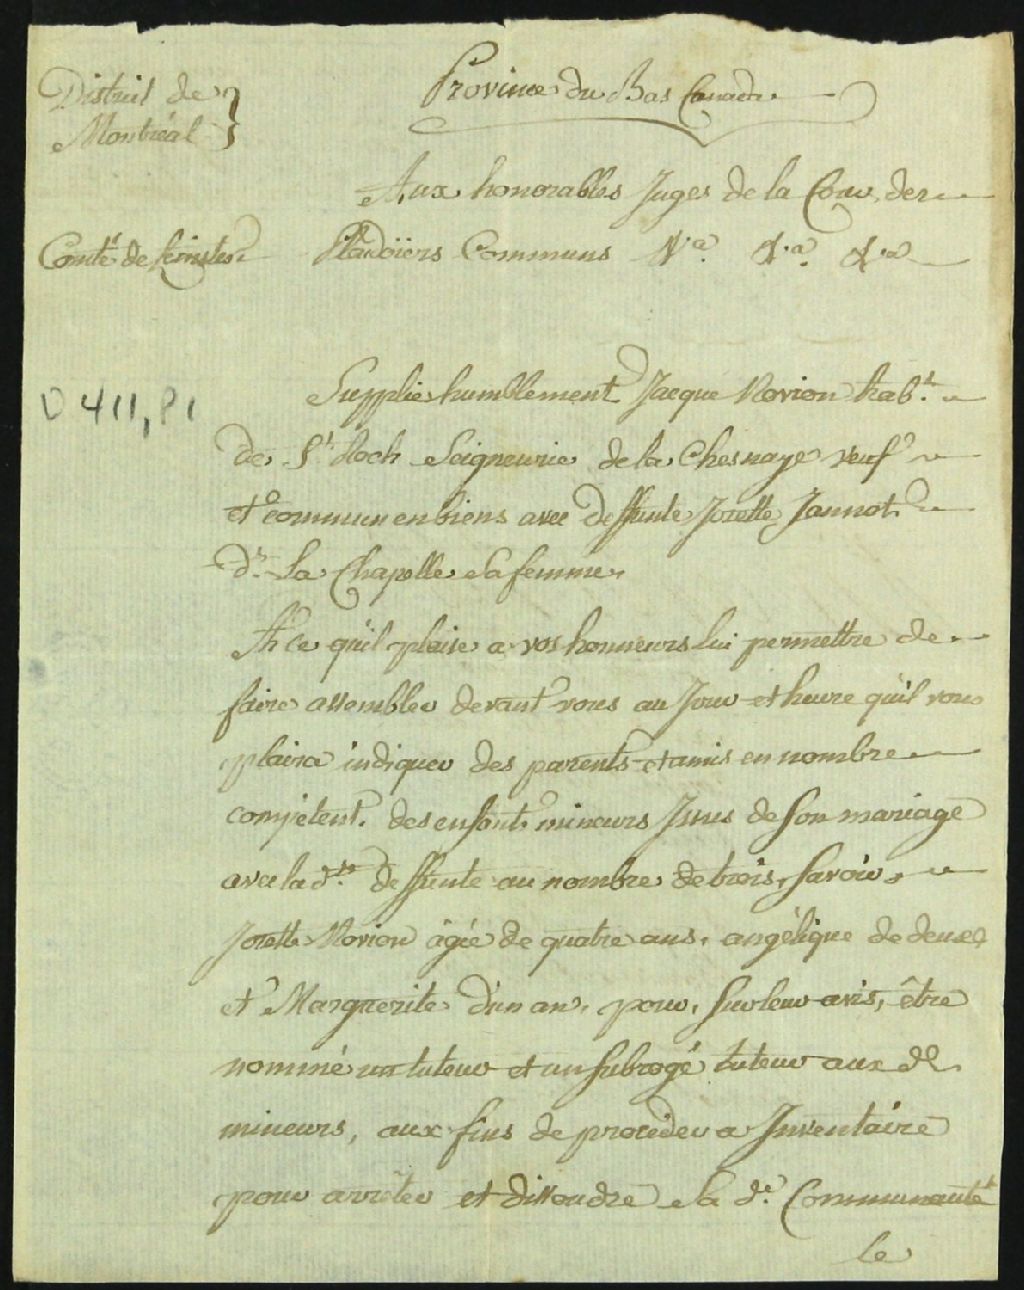 District de }
Montréal }
Province du Bas Canada
Aux honorables Juges de la Cour des
Comté de Leinster
Plaidoïers Communs &a. &.a. &.a
Supplie humblement Jacque Rorion hab.t
O 411, P1
de St. Roch Seigneurie de la Chesnaye veuf
et commun en biens avec deffunte Josette Jannot
d.t La Chapelle Sa femme
A Ce qu'il plaise a vos honneurs lui permettre de
faire assembler devant vous au Jour et heure qu'il vous
plaira indiquer des parents et amis en nombre
compétent. des enfants mineurs Issus de Son mariage
avec la d.te deffunte au nombre de trois, Savoir,
Josette Rorion âgée de quatre ans, angélique de deux
et Marguerite d'un an, pour, Sur leur avis, être
nommé un tuteur et un Subrogé tuteur aux d.
mineurs, aux fins de proceder a Inventaire
pour arrêter et dissoudre la d.e Communauté
le